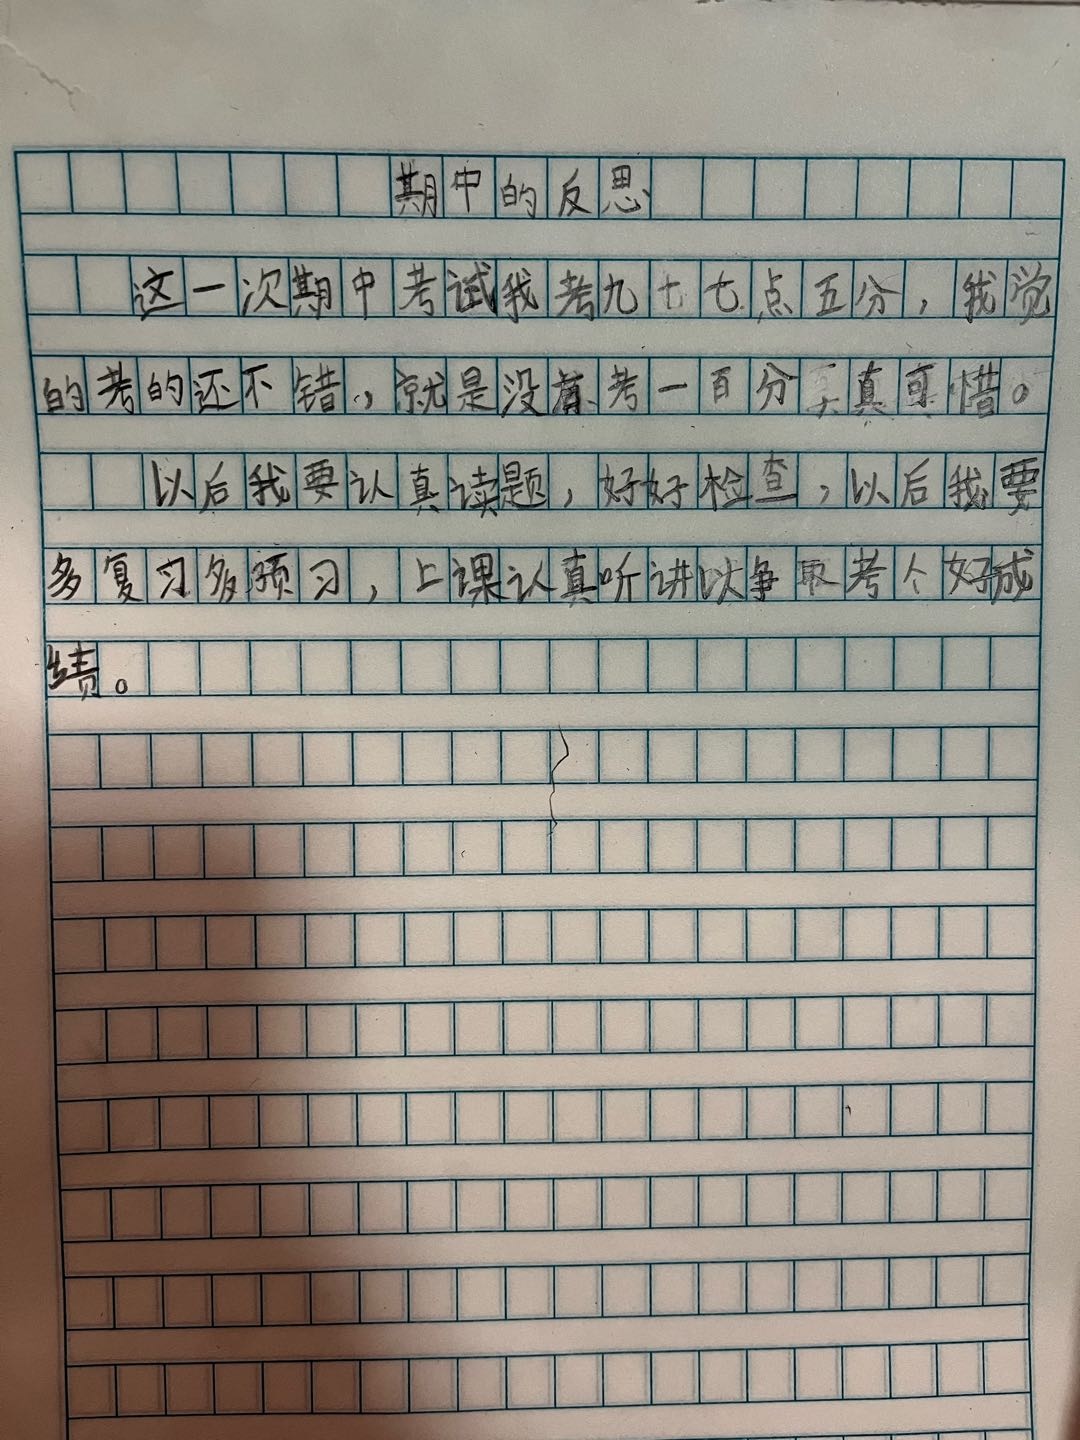 期中的反思
这一次期中考试我考九七七点五分，我觉
的考的还不错，就是没着考一百分真可惜。
以后我要认真读题，好好检查，以后我要
多复习多预习，上课认真听讲以争取考个好成
绩。